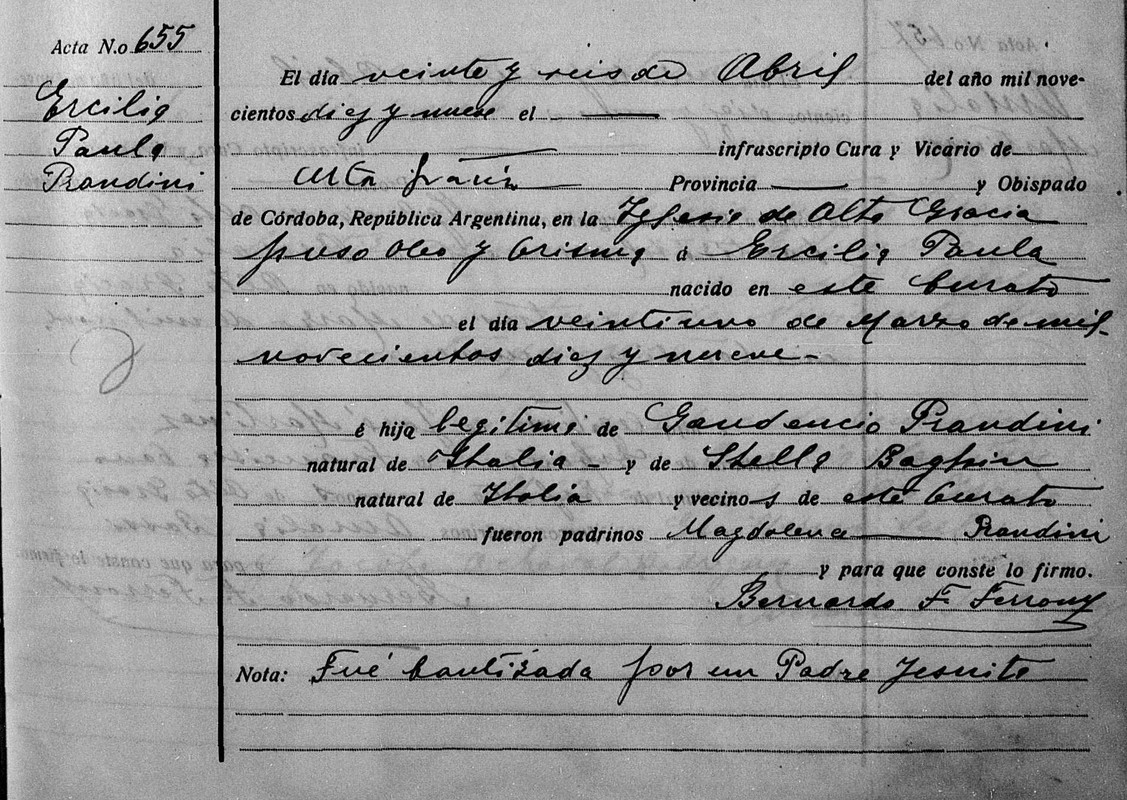 Acta N.o 655
Ercilia
Paula
Prandini
El día veinte y seis de Abril del año mil nove-
cientos diez y nueve el —
infrascripto Cura y Vicario de
Alta Gracia Provincia — y Obispado
de Córdoba, República Argentina, en la Iglesia de Alta Gracia
puso Oleo y Crisma á Ercilia Paula
nacido en este Curato
el día veintiuno de Marzo de mil
novecientos diez y nueve -
é hija legitima de Gaudencio Prandini
natural de Italia - y de Stella
natural de Italia y vecinos de este Curato
fueron padrinos Magdalena Prandini
y para que conste lo firmo.
Bernardo F.
Nota: Fué bautizada por un Padre Jesuita